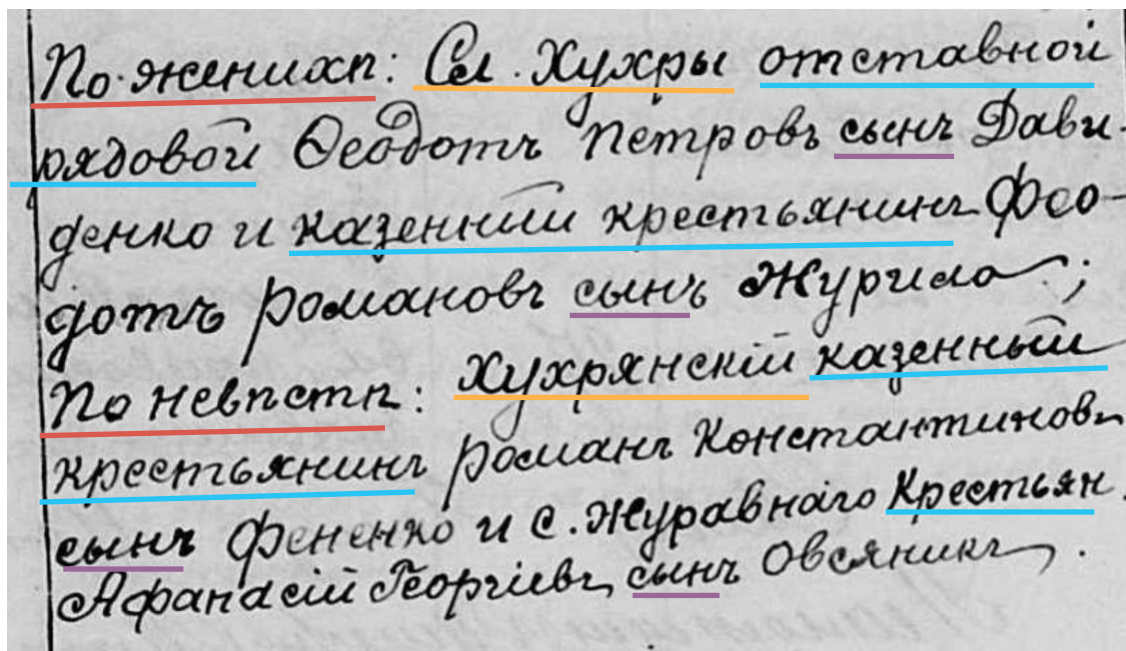 По женихѣ: Сл. Хухры отставной
рядовой Ѳеодотъ Петровъ сынъ Дави-
денко и казенный крестьянинъ Фео-
дотъ Романовъ сынъ Журило;
По невѣстѣ: Хухрянскій казенный
крестьянинъ Романъ Константиновъ
сынъ Фененко и с. Журавнаго Крестьян.
Афанасій Георгіевъ сынъ Овсяникъ.